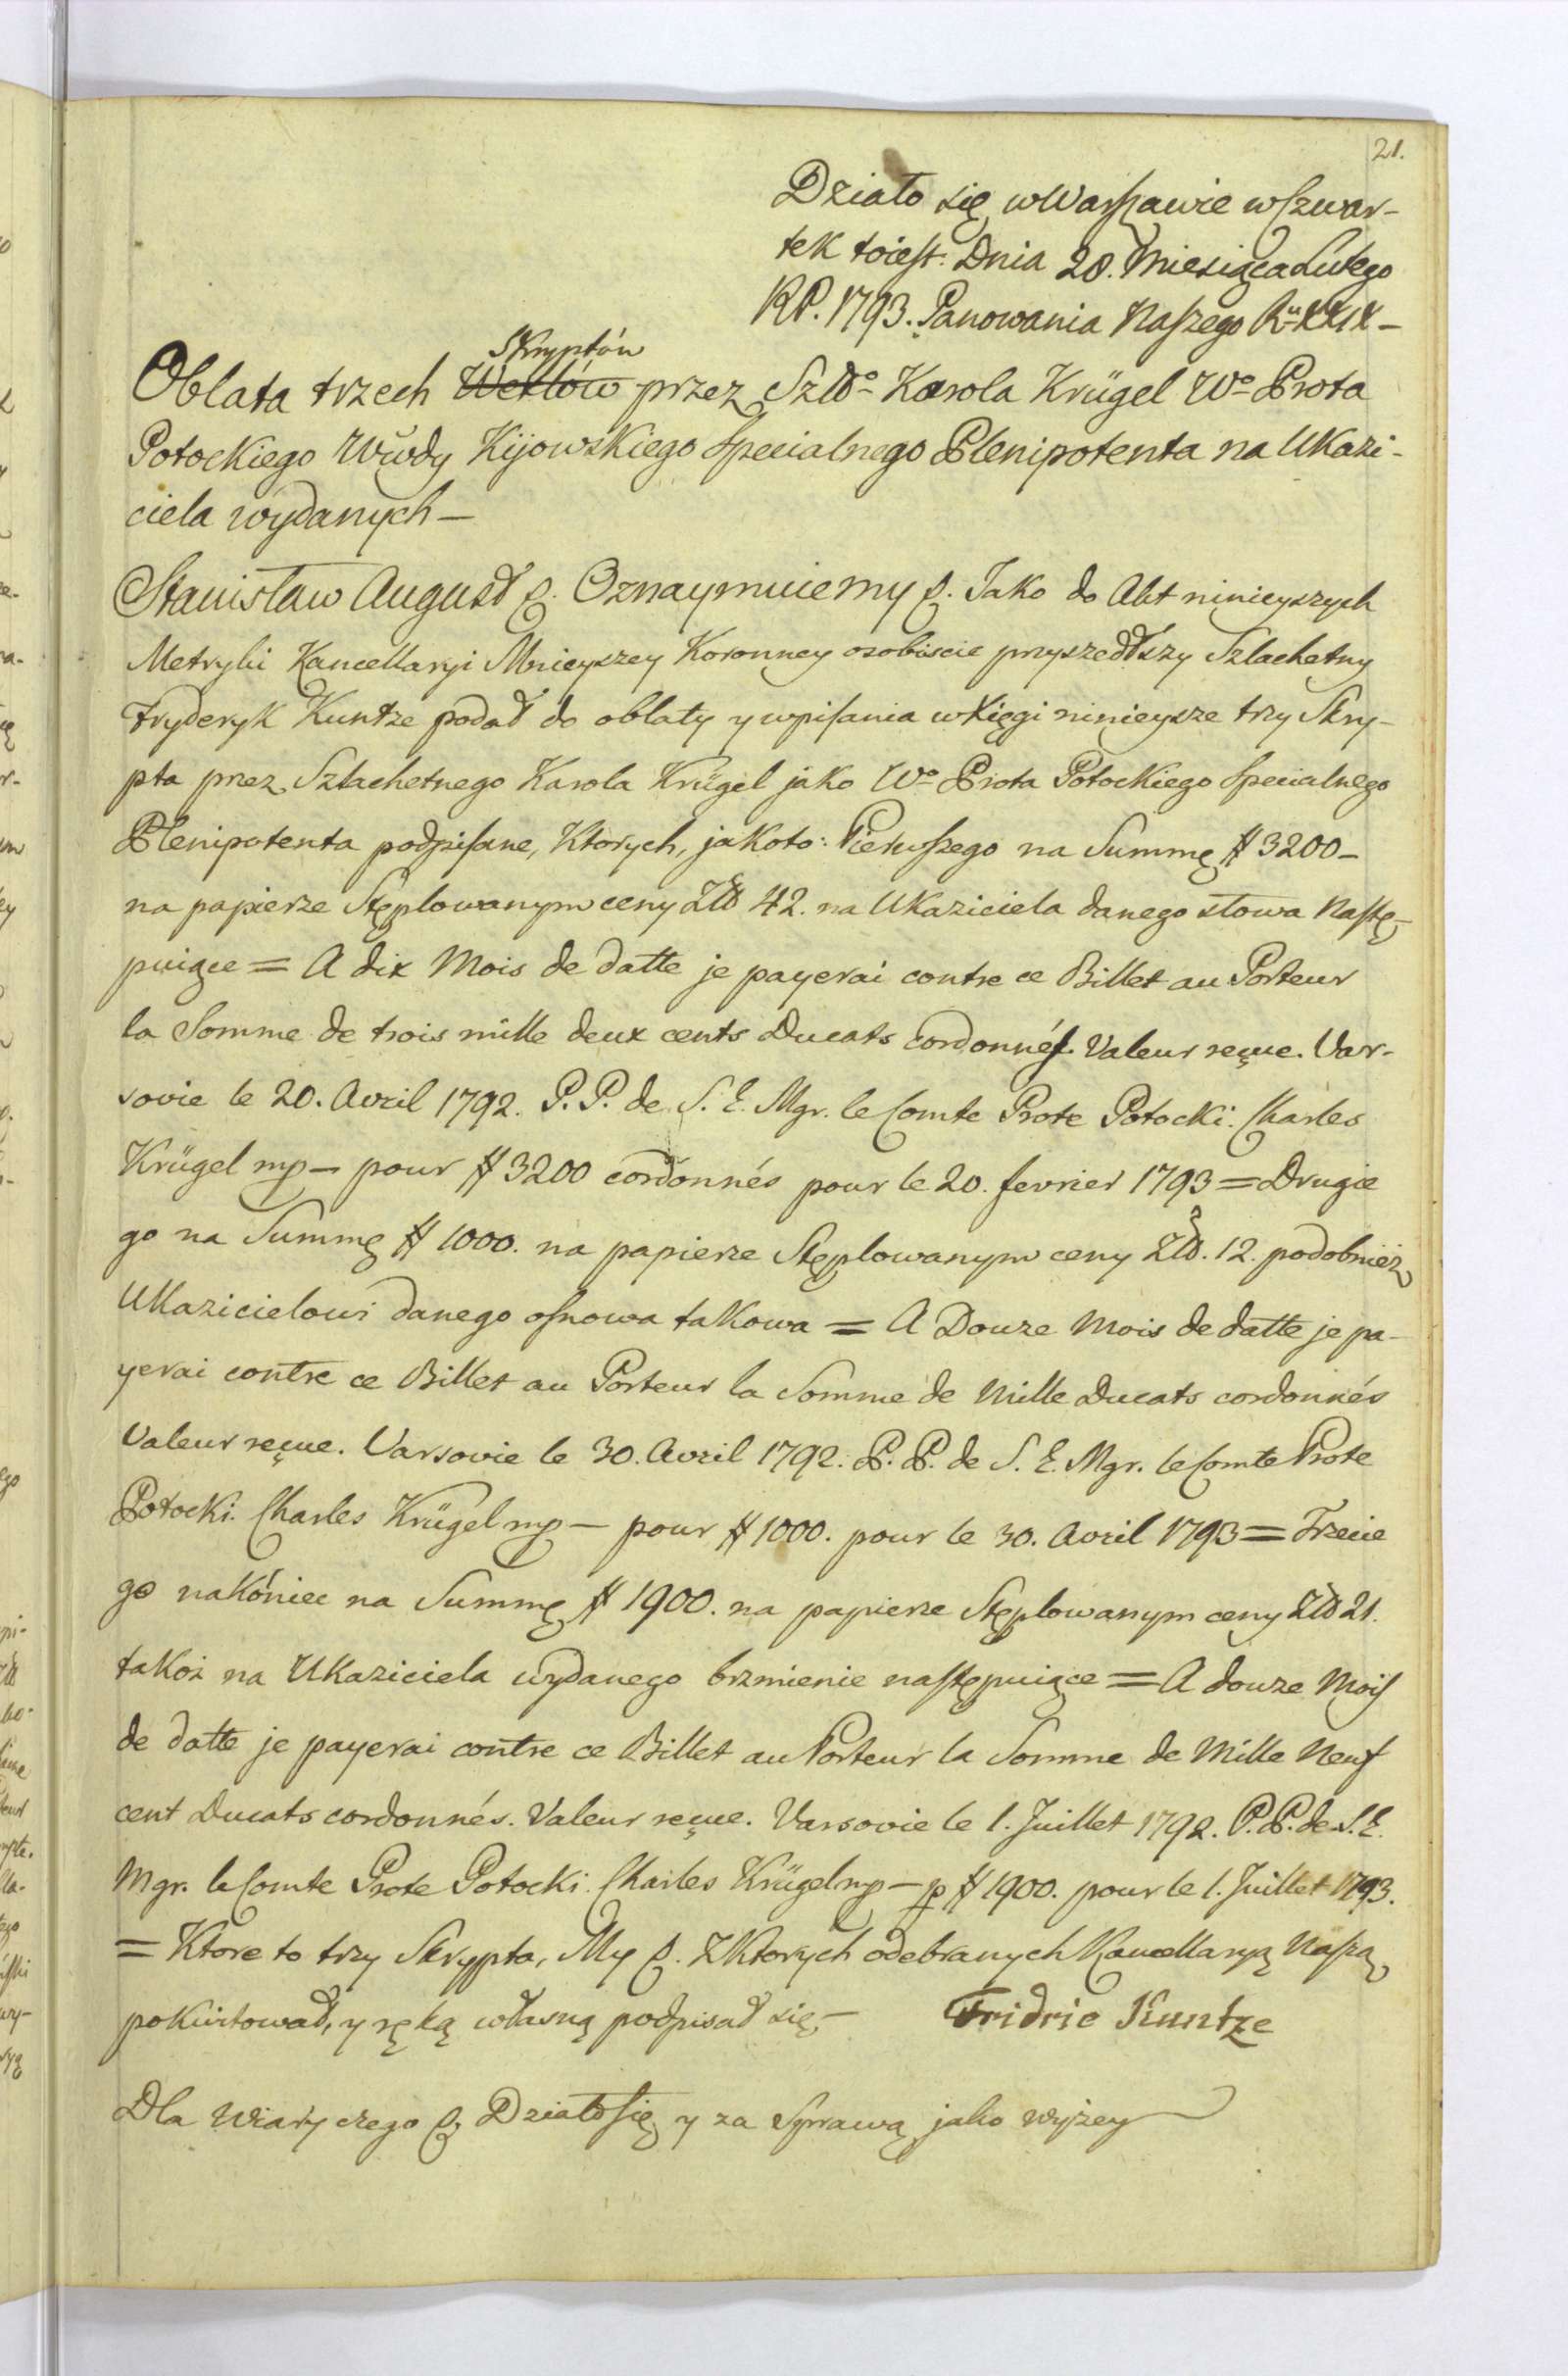 21.
Działo się w Warszawie w Czwar-
tek toiest. Dnia 28. Miesiąca Lutego
RP. 1793. Panowania Naszego Ru XXIX-
Skryptów
Oblata trzech Wexlów przez Szldo Karola Krügel Wo Prota
Potockiego Wwdy Kijowskiego Specialnego Plenipotenta na Ukazi-
ciela wydanych —
Stanisław August p. Oznaymuiemy p. Jako do Akt ninieyszych
Metryki Kancellaryi Mnieyszey Koronney osobiscie przyszedłszy Szlachetny
Fryderyk Kuntze podał do oblaty y wpisania w Xięgi ninieysze trzy Skry-
pta przez Szlachetnego Karola Krügel jako Wo Prota Potockiego Specialnego
Plenipotenta podpisane, Ktorych, jakoto: Pierwszego na Summę # 3200 –
na papierze Stęplowanym ceny Zł 42. na Ukaziciela danego słowa Nastę-
puiące = A dix Mois de datte je payerai contre ce Billet au Porteur
la Somme de trois mille deux cents Ducats cordonnés. Valeur reçue. Var-
sovie le 20. Avril 1792. P. P. de S. E. Mgr. le Comte Prote Potocki. Charles
Krügel mp — pour # 3200 cordonnés pour le 20. fevrier 1793 = Drugie
go na Summę # 1000. na papierze Stęplowanym ceny Zł. 12. podobnież
Ukazicielowi danego osnowa takowa = A Douze Mois de datte je pa-
yerai contre ce Billet au Porteur la Somme de Mille Ducats cordonnés
Valeur reçue. Varsovie le 30. Avril 1792. P. P. de S. E. Mgr. le Comte Prote
Potocki. Charles Krügel mp — pour # 1000. pour le 30. Avril 1793 = Trzecie
go nakóniec na Summę # 1900. na papierze Stęplowanym ceny Zł 21.
takoż na Ukaziciela wydanego brzmienie następuiące = A douze Mois
de datte je payerai contre ce Billet au Porteur la Somme de Mille Neuf
cent Ducats cordonnés. Valeur reçue. Varsovie le 1. Juillet 1792. P. P. de S. E.
Mgr. le Comte Prote Potocki. Charles Krügel mp — p # 1900. pour le 1. Juillet 1793.
= Ktore to trzy Skrypta, My p. Z Ktorych odebranych Kancellaryą Naszą
pokwitował, y ręką własną podpisał się, — Fridric Kuntze
Dla Wiary czego p. Działo się y za Sprawą jako wyżey